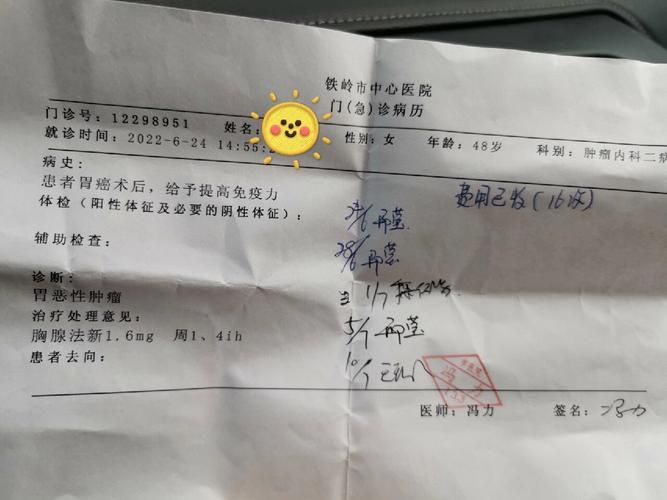 铁岭市中心医院
门(急)诊病历
门诊号：12298951 姓名： 性别：女 年龄：48岁 科别：肿瘤内科二病
就诊时间：2022-6-24 14:55:2
病史：
患者胃癌术后，给予提高免疫力
体检（阳性体征及必要的阴性体征）：
费用已收（16次）
辅助检查：
28/6
诊断：
1/7
胃恶性肿瘤
治疗处理意见：
5/7
胸腺法新1.6mg 周1、4ih
患者去向：
10/7
冯力
医师：冯力 签名：冯力